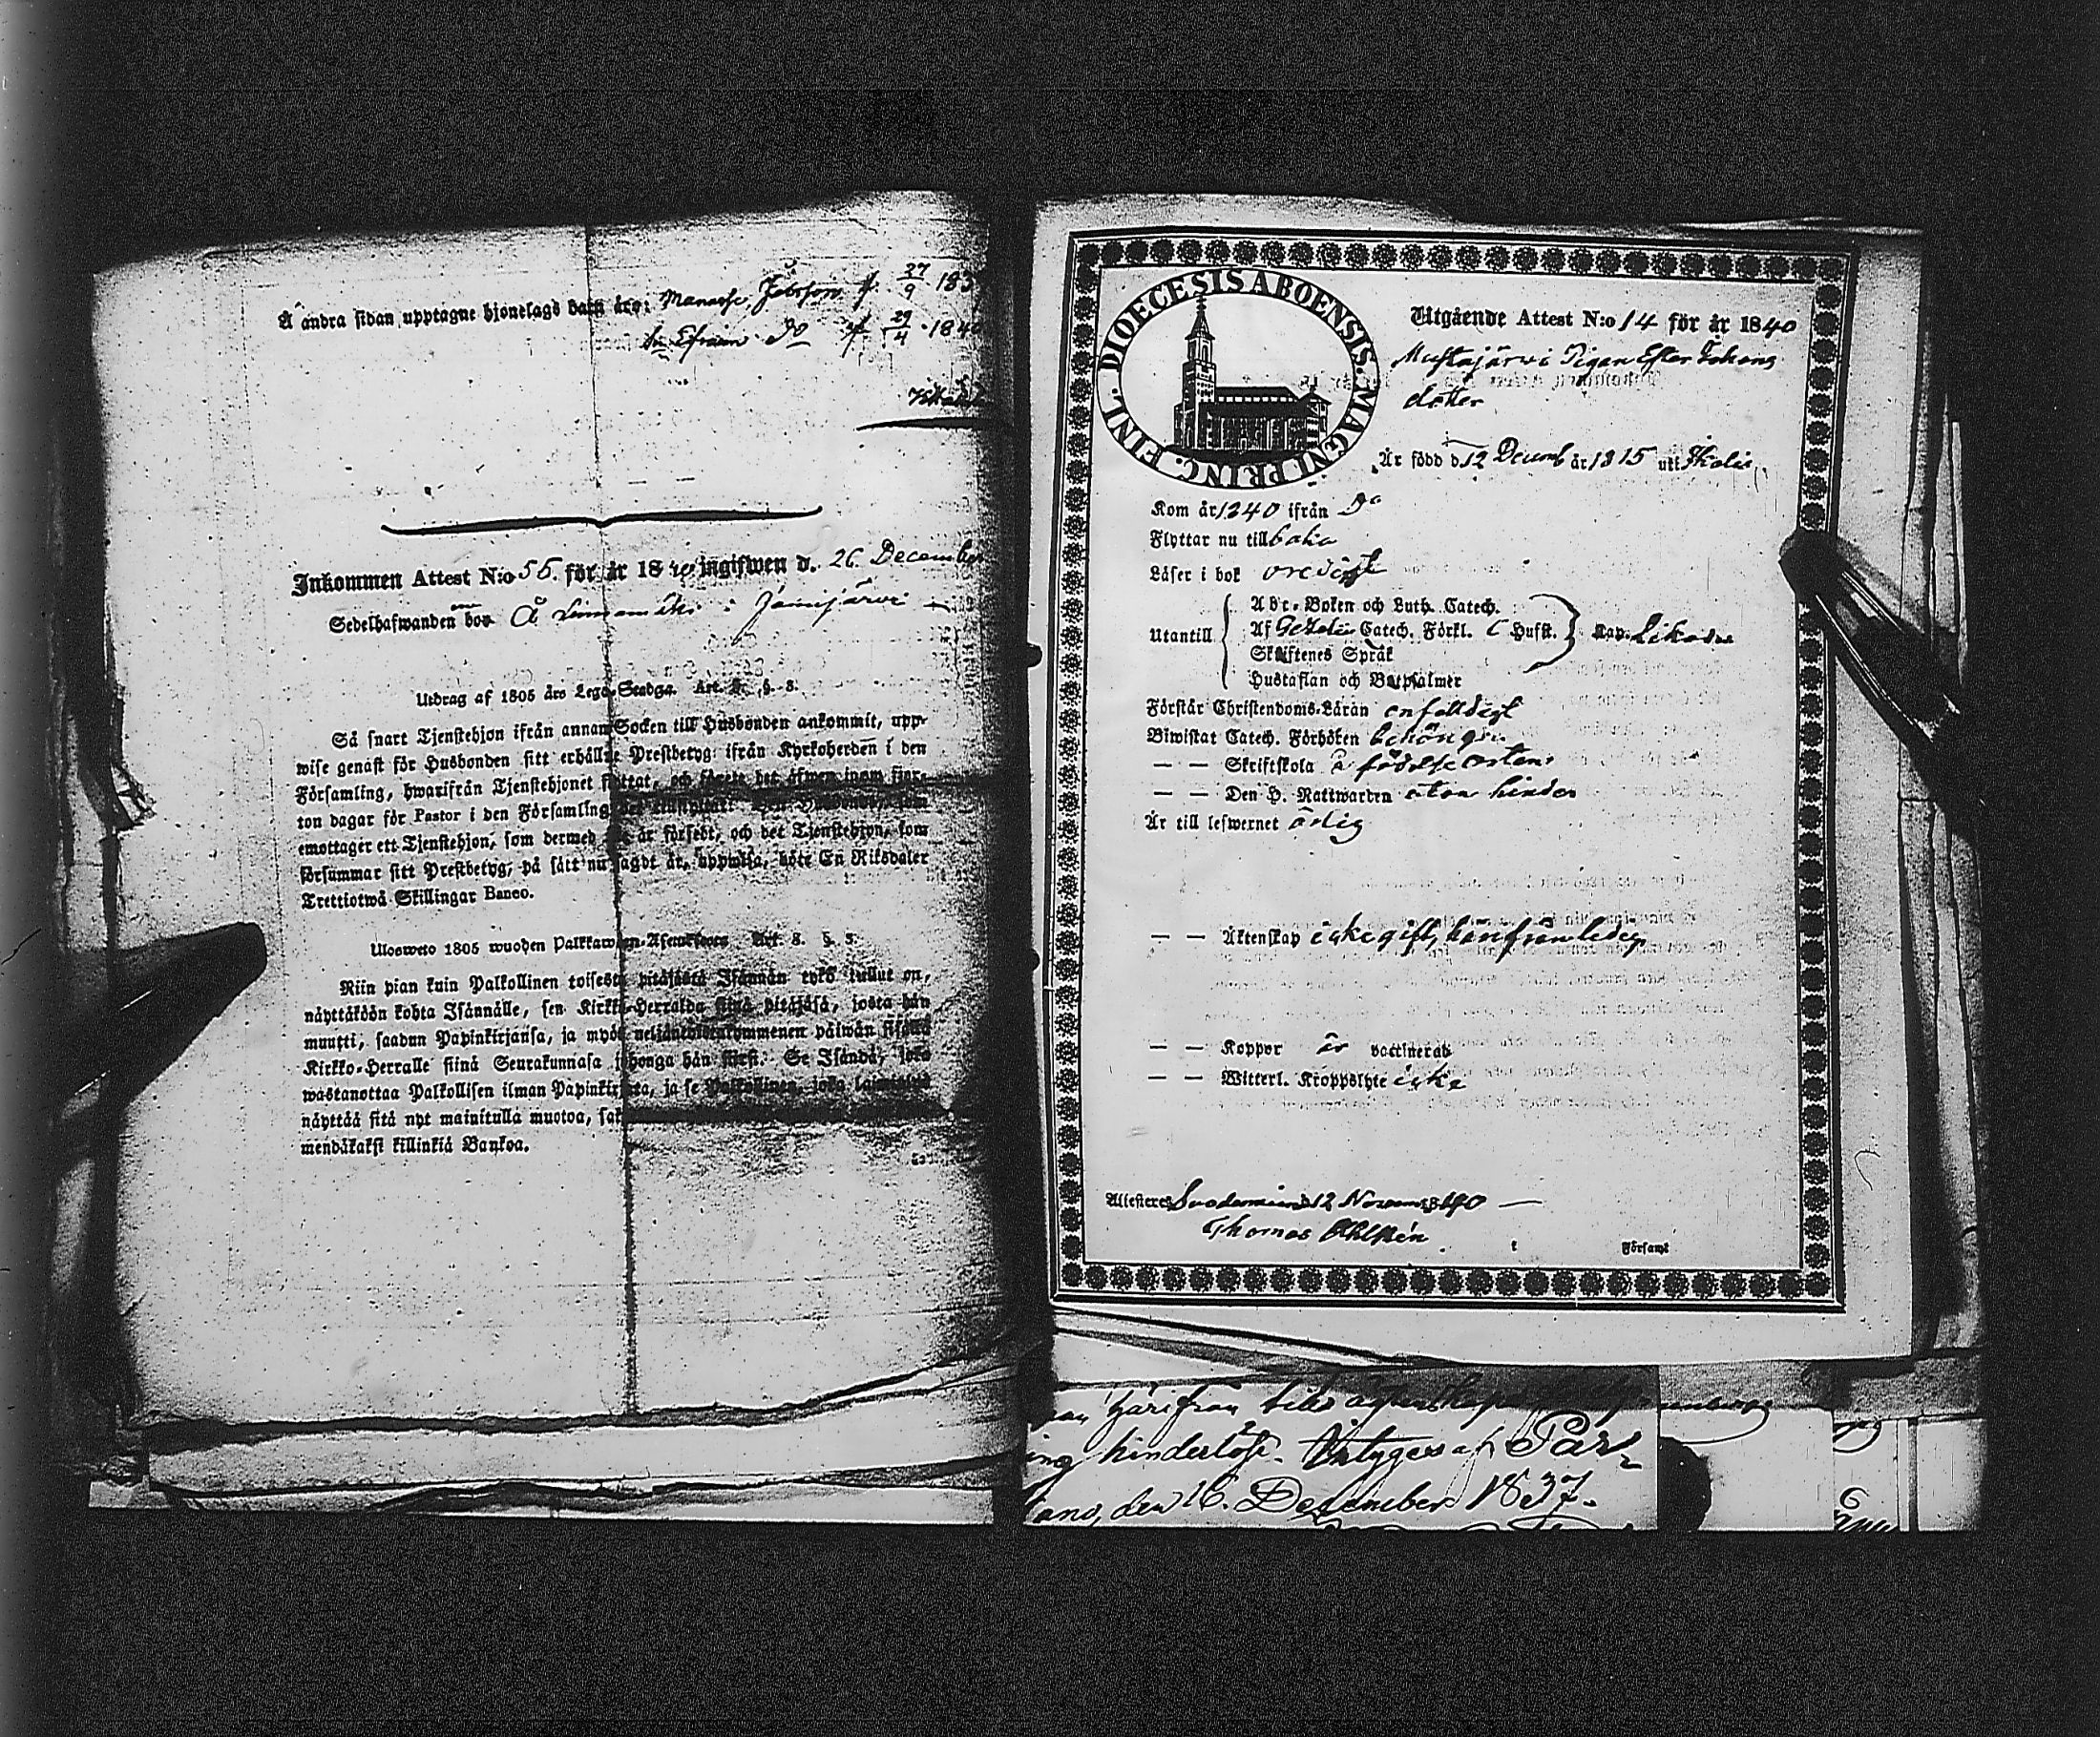 Å andra sidan upptagne hjonelags barn äro: Manasse, Jobsson f. 27/9 183
Efraim Do f. 29/4 1840
Inkommen Attest N:o 55. för år 1840 ingifwen d. 26 December
Sedelhafwanden bor Å Linnamäki i Jämijärvi
Utdrag af 1805 års Lego-Stadga. Art. 3. §. 3.
Så snart Tjenstehjon ifrån annan Socken till Husbonden ankommit, upp-
wise genast för Husbonden sitt erhållne Prestbetyg ifrån Kyrkoherden i den
Församling, hwarifrån Tjenstehjonet flyttat, och förete det äfwen inom fjor-
ton dagar för Pastor i den Församling
emottager ett Tjenstehjon, som dermed är försedt, och det Tjenstehjon, som
försummar sitt Prestbetyg, på sätt nu sagdt är, uppwisa, böte En Riksdaler
Trettiotwå Skillingar Banco.
Ulosweto 1805 wuoden Palkkawäen-Asetuksesta Art. 3. §. 3.
Niin pian kuin Palkollinen toisesta pitäjästä Isännän tykö tullut on,
näyttäköön kohta Isännälle, sen Kirkko-Herralda siinä pitäjäsä, josta hän
muutti, saadun Papinkirjansa, ja myös neljäntoistakymmenen päiwän sisällä
Kirkko-Herralle siinä Seurakunnasa johonga hän siirsi. Se Isändä, joka
wastanottaa Palkollisen ilman Papinkirjata, ja se Palkollinen, joka laiminlyö
näyttää sitä nyt mainitulla muotoa, sak
mendäkaksi killinkiä Bankoa.
DIOECESIS ABOENSIS. MAGNI PRINC. FINL.
Utgående Attest N:o 14 för år 1840
Mustajärwi Pigan Ester Johans
dotter
Är född d. 12 Decemb år 1815 uti Ikalis
Kom år 1840 ifrån Do
Flyttar nu tillbaka
Läser i bok oredigt
Utantill
Abc-Boken och Luth. Catech.
Af Catech. Förkl. Husft. Kap. Likaså
Skriftenes Språk
Hustaflan och Botpsalmer
Förstår Christendoms-Läran enfaldigt
Biwistat Catech. Förhören behörigen
— — Skriftskola å födelseorten
— — Den H. Nattwarden utan hinder
Är till lefwernet ärlig
— — Äktenskap icke gift, härifrån ledig
— — Koppor är vaccinerad
— — Witterl. Kroppslyte icke
Attesteras Suodenniemi d. 12 Novemb 1840 —
Thomas Ahlstén
i Församl
härifrån till
ing hinderlöse. Intygas af Par-
kano, den 16. December 1837.